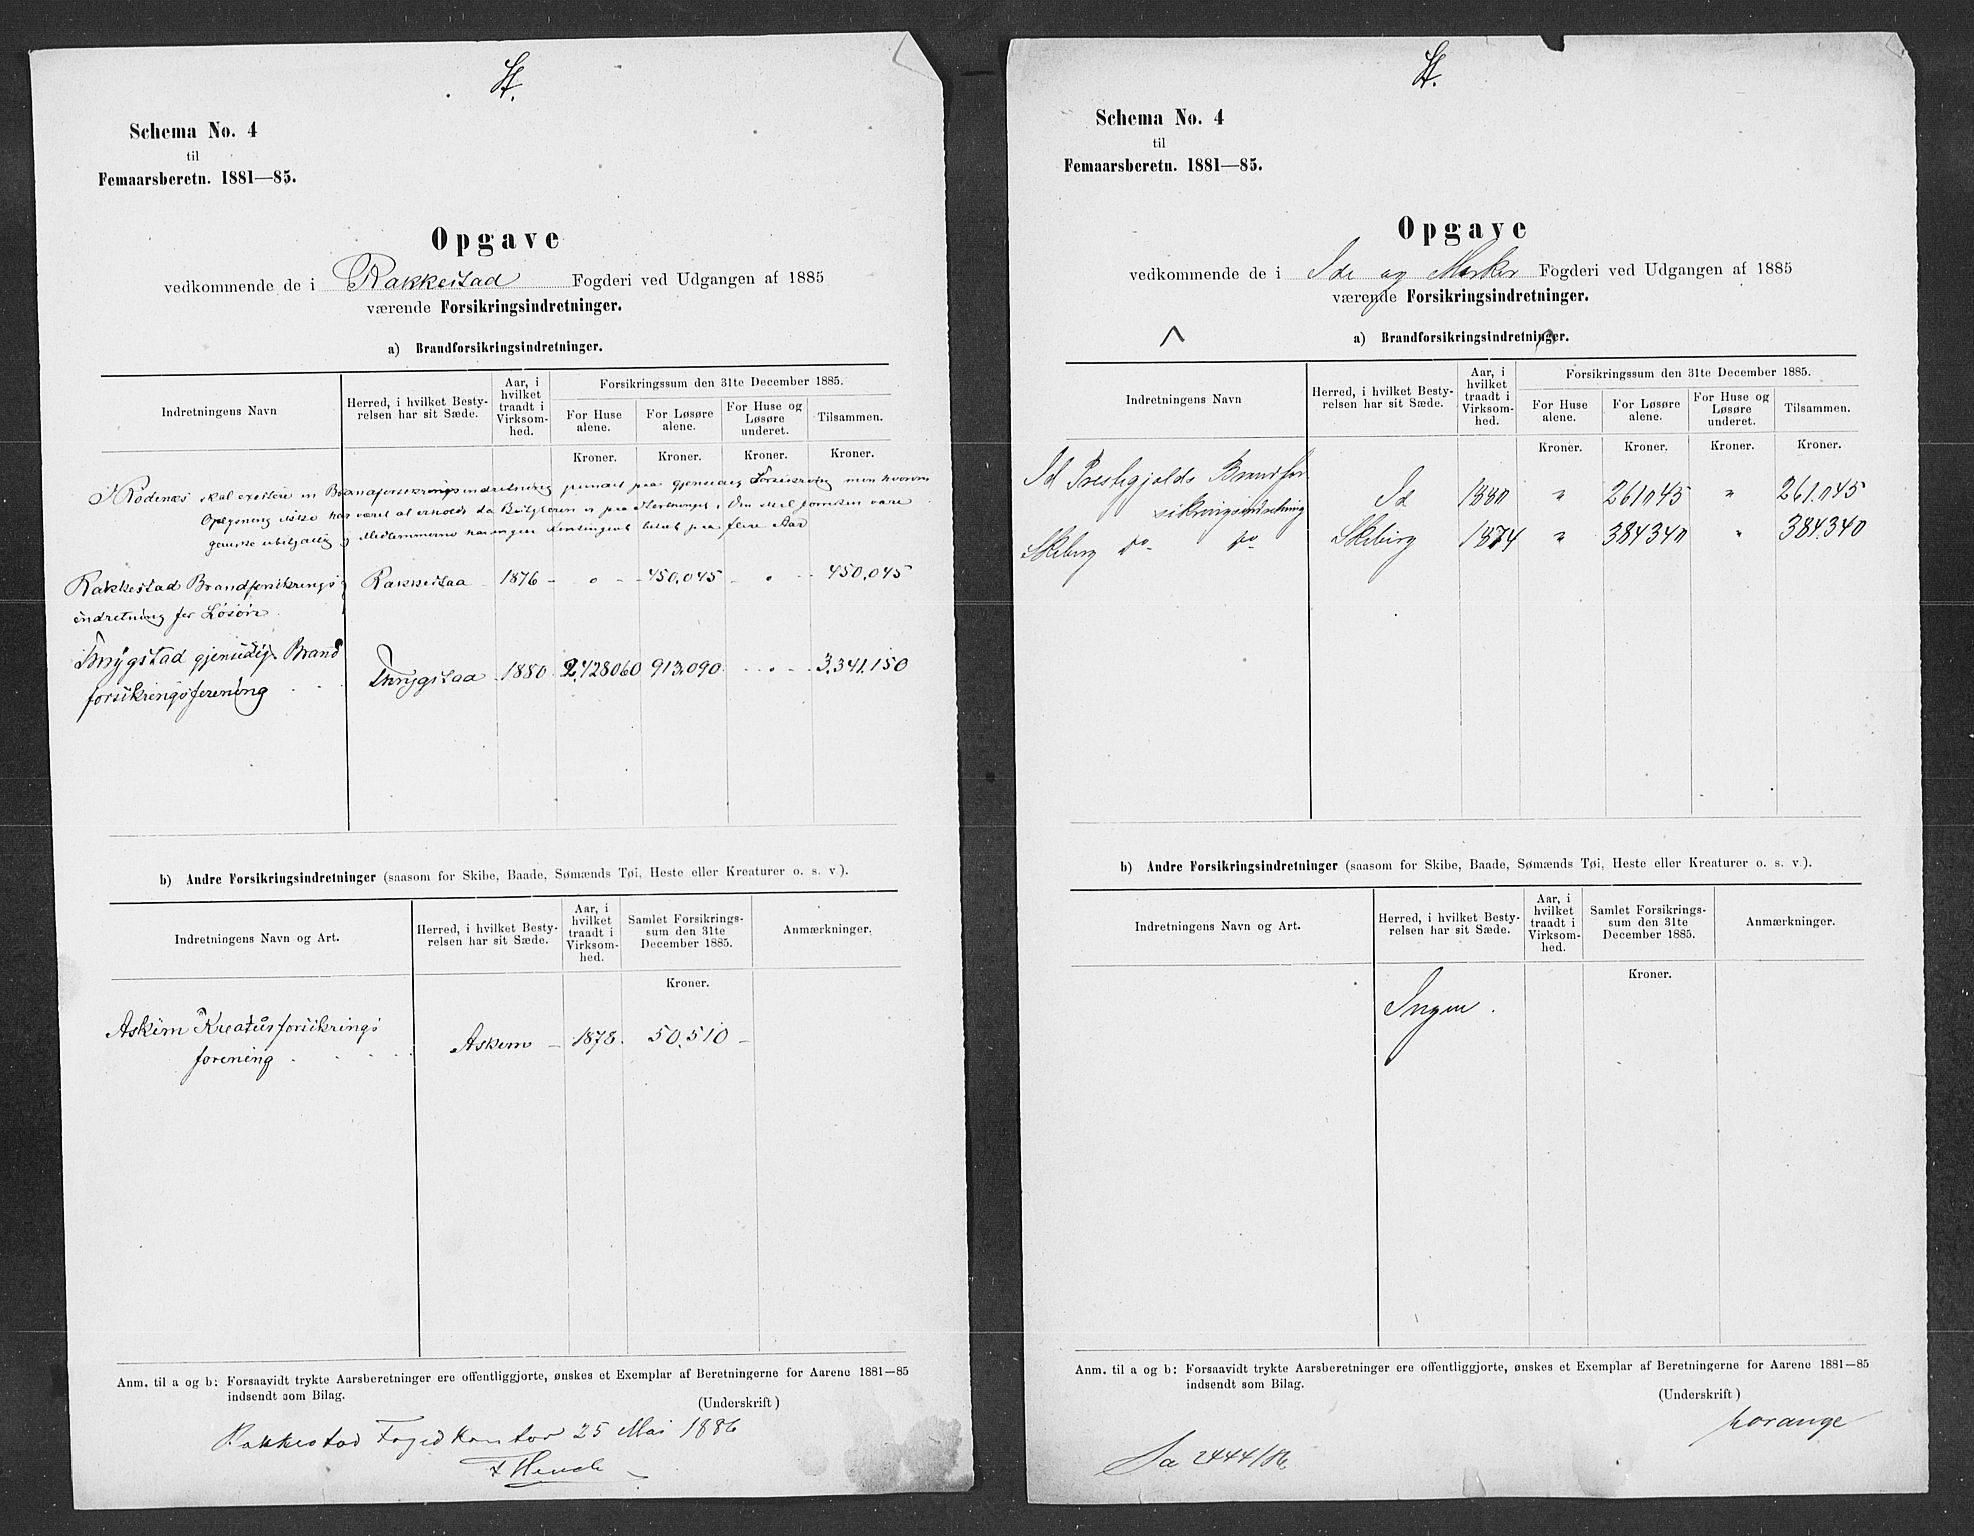 St.
Schema No. 4
til
Femaarsberetn. 1881—85.
Opgave
vedkommende de i Rakkestad Fogderi ved Udgangen af 1885
værende Forsikringsindretninger.
a) Brandforsikringsindretninger.
Indretningens Navn
Herred, i hvilket Besty-
relsen har sit Sæde.
Aar, i
hvilket
traadt i
Virksom-
hed.
Forsikringssum den 31te December 1885.
For Huse
alene.
For Løsøre
alene.
For Huse og
Løsøre
underet.
Tilsammen.
Kroner. Kroner. Kroner. Kroner.
I Rødenæs skal existere en Brandforsikringsindretning paa gjensidig Forsikring men hvorom
Oplysning ikke har været at erholde da Bestyreren er paa Stortinget,
ganske ubetydelig og Medlemmerne har ingen Kontingent betalt paa flere Aar
Rakkestad Brandforsikrings Rakkestad 1876 - " - 450,045 - " - 450,045
indretning for Løsøre
Thrygstad gjensidige Brand
forsikringsforening . . . Thrygstad 1880 2,428060 913,090 . . " . . 3.341.150
b) Andre Forsikringsindretninger (saasom for Skibe, Baade, Sømænds Tøi, Heste eller Kreaturer o. s. v.).
Indretningens Navn og Art.
Herred, i hvilket Besty-
relsen har sit Sæde.
Aar, i
hvilket
traadt i
Virksom-
hed.
Samlet Forsikrings-
sum den 31te
December 1885.
Anmærkninger.
Kroner.
Askim Kreaturforsikrings
forening . . . . Askim - 1878. 50.510 -
Anm. til a og b: Forsaavidt trykte Aarsberetninger ere offentliggjorte, ønskes et Exemplar af Beretningerne for Aarene 1881—85
indsendt som Bilag.
(Underskrift)
Rakkestad Fogedkontor 25 Mai 1886
St.
Schema No. 4
til
Femaarsberetn. 1881—85.
Opgave
vedkommende de i Ide og Marker Fogderi ved Udgangen af 1885
værende Forsikringsindretninger.
a) Brandforsikringsindretninger.
Indretningens Navn
Herred, i hvilket Besty-
relsen har sit Sæde.
Aar, i
hvilket
traadt i
Virksom-
hed.
Forsikringssum den 31te December 1885.
For Huse
alene.
For Løsøre
alene.
For Huse og
Løsøre
underet.
Tilsammen.
Kroner. Kroner. Kroner. Kroner.
Id Prestegjelds Brandfor
sikringsindretning Id 1880 " 261045 " 261.045
Skiberg do do Skiberg 1874 " 384340 " 384.340
b) Andre Forsikringsindretninger (saasom for Skibe, Baade, Sømænds Tøi, Heste eller Kreaturer o. s. v.).
Indretningens Navn og Art.
Herred, i hvilket Besty-
relsen har sit Sæde.
Aar, i
hvilket
traadt i
Virksom-
hed.
Samlet Forsikrings-
sum den 31te
December 1885.
Anmærkninger.
Kroner.
Ingen.
Anm. til a og b: Forsaavidt trykte Aarsberetninger ere offentliggjorte, ønskes et Exemplar af Beretningerne for Aarene 1881—85
indsendt som Bilag.
(Underskrift)
Lorange
Sa 2444/86.